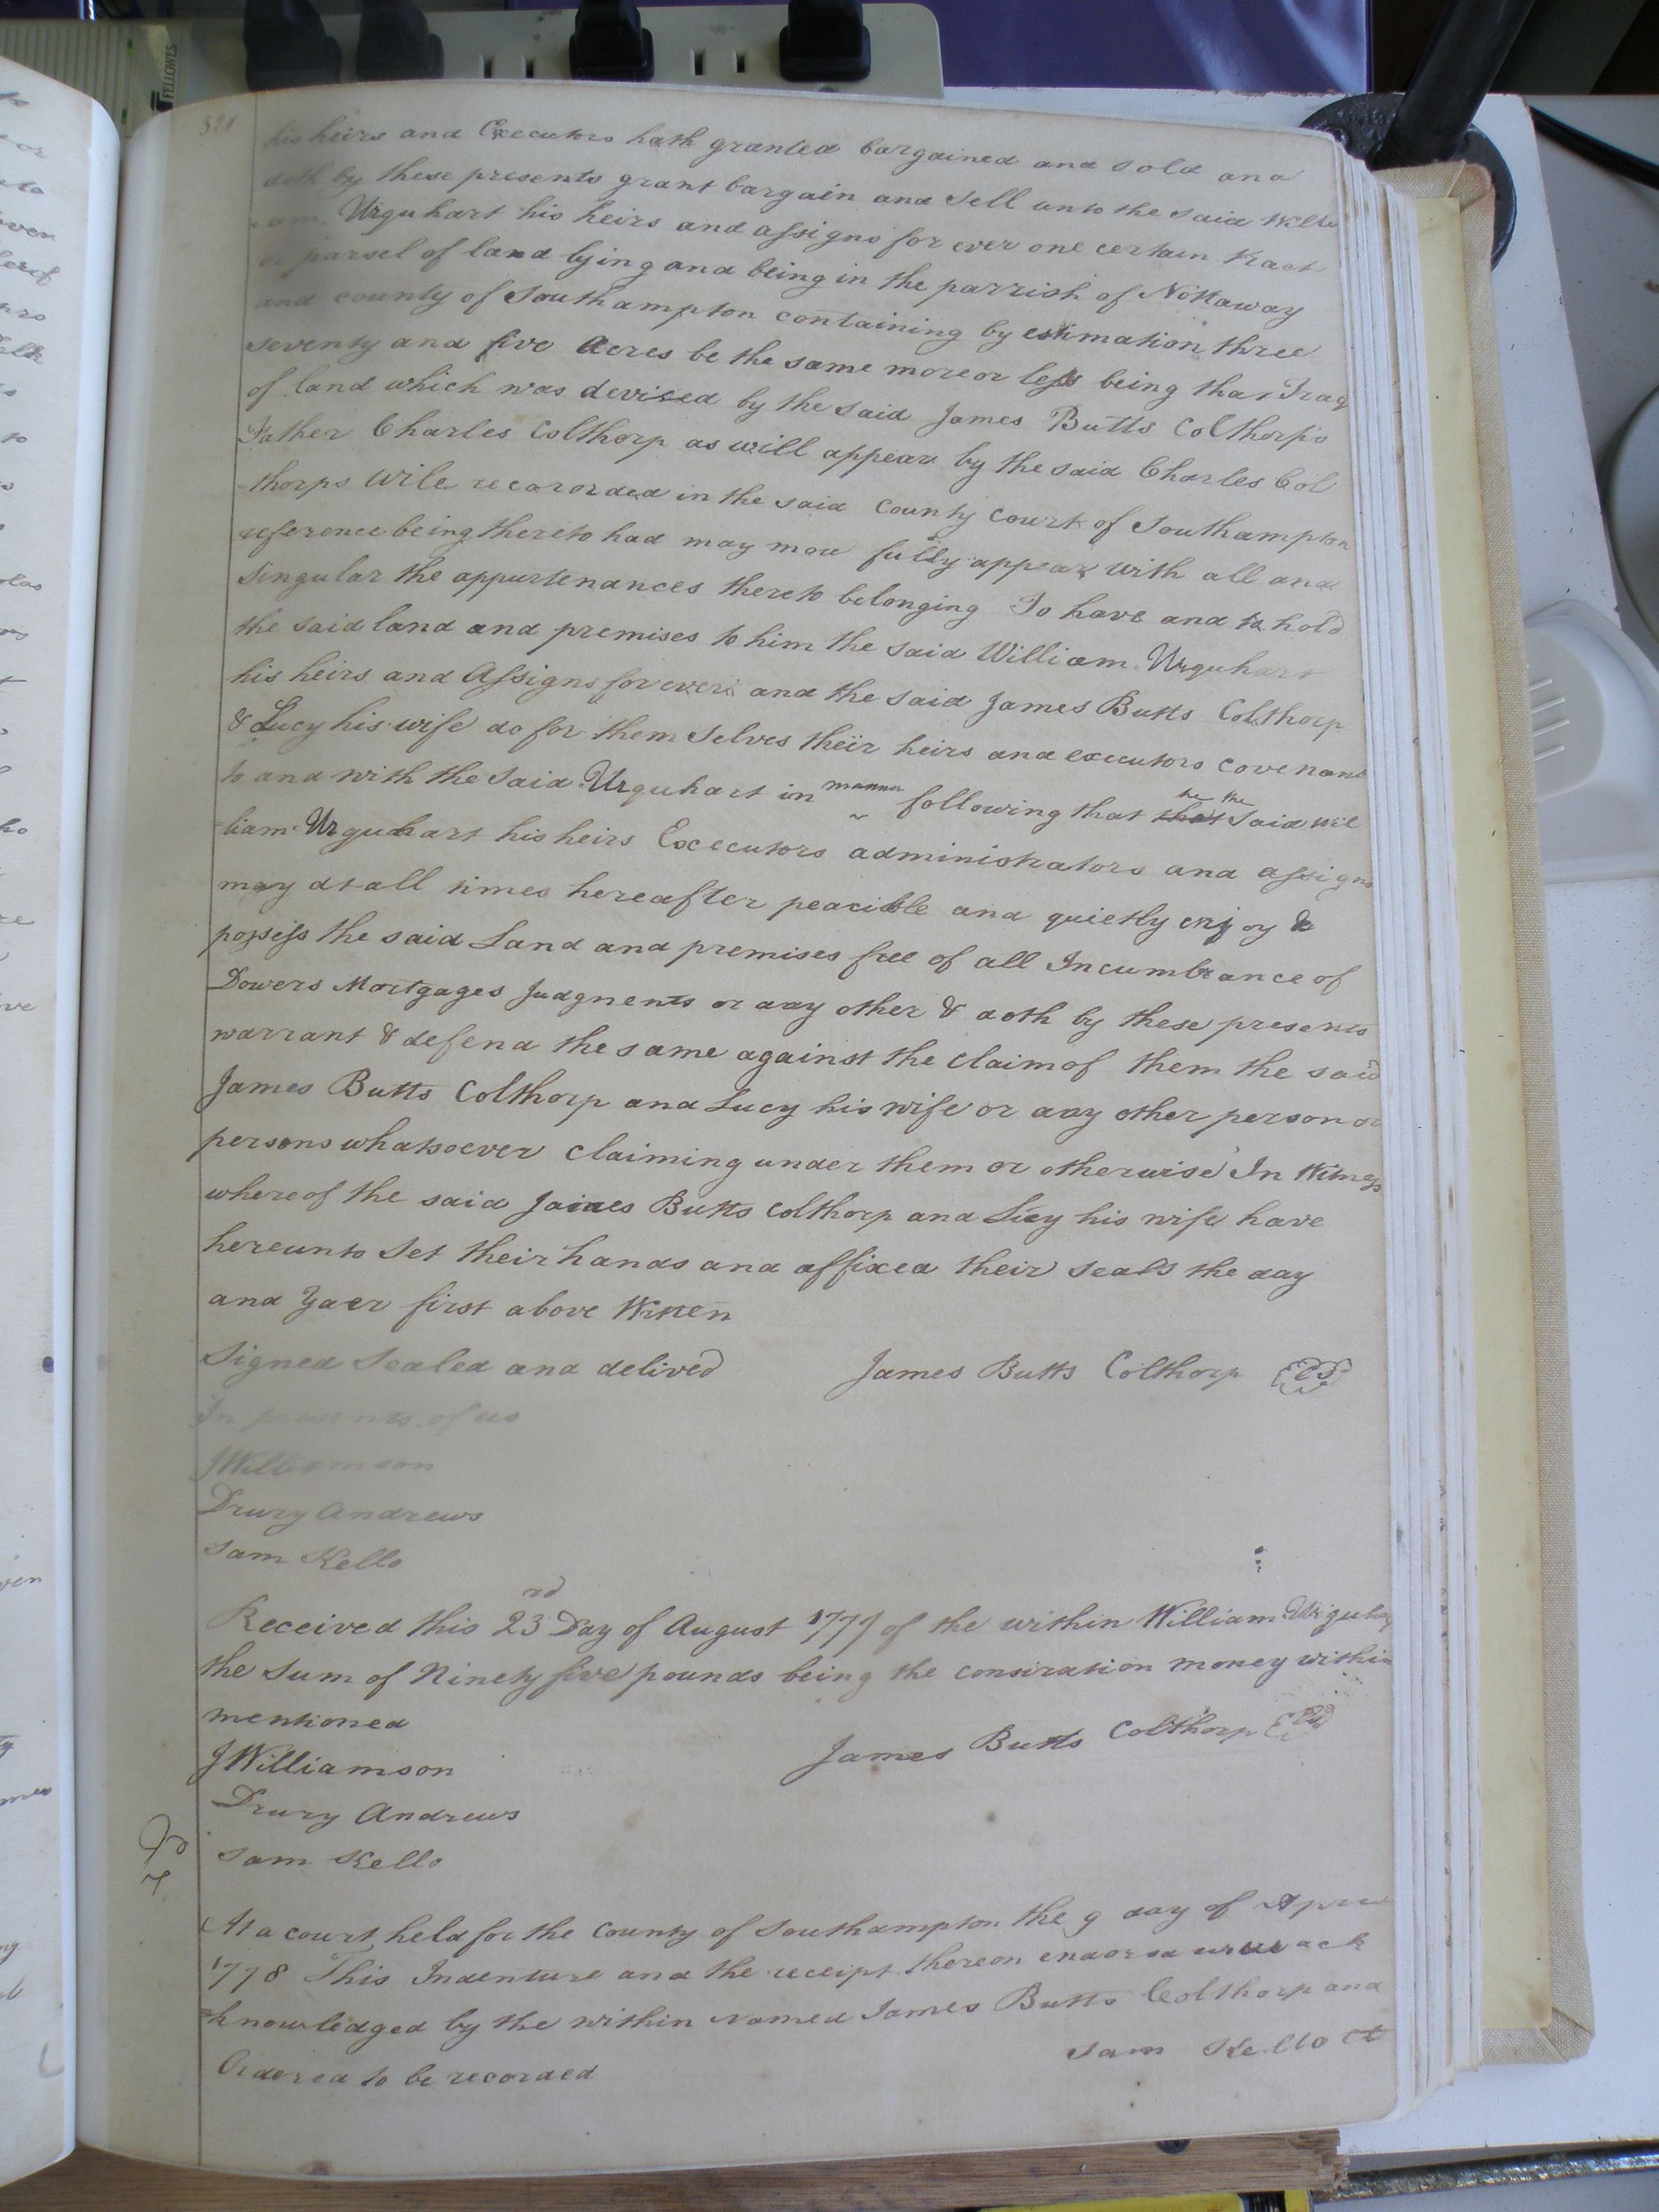 FELLOWES
321
his heirs and Executors hath granted bargained and sold and
doth by these presents grant bargain and sell unto the said Willi
-am Urquhart his heirs and assigns for ever one certain tract
or parsel of land lying and being in the parrish of Nottaway
and county of Southampton containing by estimation three
seventy and five Acres be the same more or less being that Tract
of land which was devised by the said James Butts Colthorps
Father Charles Colthorp as will appear by the said Charles Col
-thorps Wile recarorded in the said County Court of Southampton
reference being thereto had may more fully appear with all and
Singular the appurtenances thereto belonging To have and to hold
the said land and premises to him the said William Urquhart
his heirs and Assigns for ever and the said James Butts Colthorp
& Lucy his wife do for them selves their heirs and executors covenant
to and with the said Urquhart in manner following that the the said Wil
-liam Urquhart his heirs Executors administrators and assigns
may at all times hereafter peacible and quietly enjoy &
possess the said Land and premises free of all Incumbrance of
Dowers Mortgages Judgments or any other & doth by these presents
warrant & defend the same against the claim of them the said
James Butts Colthorp and Lucy his wife or any other person or
persons whatsoever claiming under them or otherwise In Witness
whereof the said James Butts Colthorp and Lucy his wife have
hereunto set their hands and affixed their seals the day
and Yaer first above Witten
Signed Sealed and delived James Butts Colthorp LS
In presents of us
J Williamson
Drury Andrews
Sam Kello
Received this 23rd Day of August 1777 of the within William Urquhart
the sum of Ninety five pounds being the consiration money within
mentioned
James Butts Colthorp LS
J Williamson
Drury Andrews
Sam Kello
At a court held for the County of Southampton the 9 day of April
1778 This Indenture and the receipt thereon endorsd were ack
=knowledged by the within Named James Butts Colthorp and
Ordered to be recorded
Sam Kello Ct